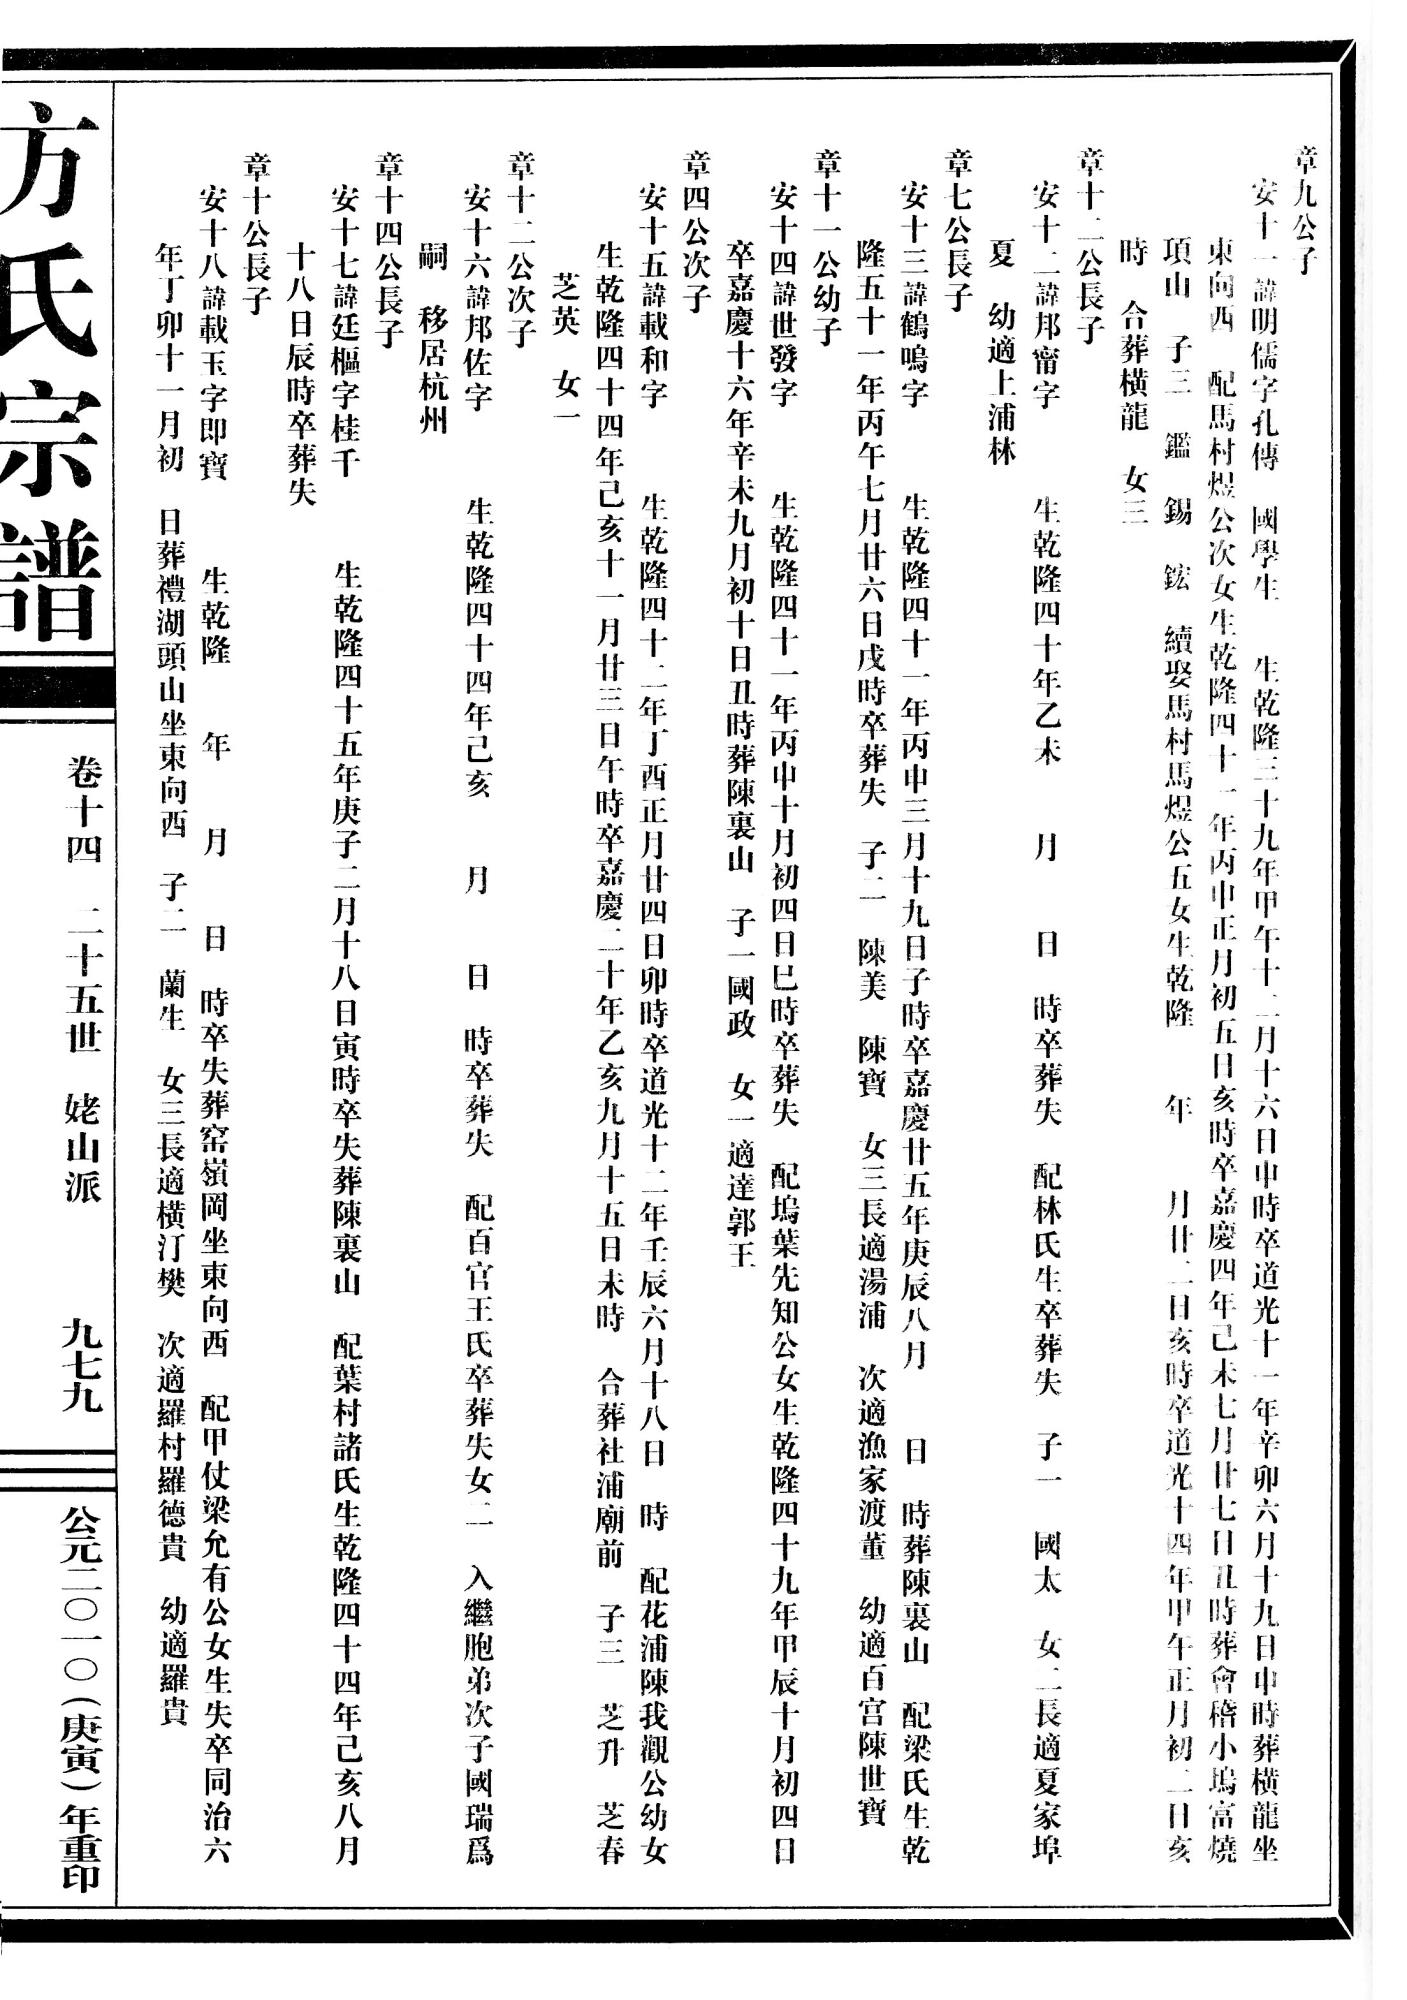 章九公子
安十一諱明儒字孔傳　國學生　　生乾隆三十九年甲午十二月十六日申時卒道光十一年辛卯六月十九日申時葬橫龍坐
東向西　配馬村煜公次女生乾隆四十一年丙申正月初五日亥時卒嘉慶四年己未七月廿七日丑時葬會稽小塢富燒
項山　子三　鑑　錫　鋐　續娶馬村馬煜公五女生乾隆　　年　　月廿二日亥時卒道光十四年甲午正月初二日亥
時　合葬橫龍　女三
章十二公長子
安十二諱邦甯字　　　生乾隆四十年乙未　　月　　日　時卒葬失　配林氏生卒葬失　子一　國太　女二長適夏家埠
夏　幼適上浦林
章七公長子
安十三諱鶴鳴字　　　生乾隆四十一年丙申三月十九日子時卒嘉慶廿五年庚辰八月　　日　時葬陳裏山　配梁氏生乾
隆五十一年丙午七月廿六日戌時卒葬失　子二　陳美　陳寶　女三長適湯浦　次適漁家渡董　幼適百宫陳世寶
章十一公幼子
安十四諱世發字　　　生乾隆四十一年丙申十月初四日巳時卒葬失　配塢葉先知公女生乾隆四十九年甲辰十月初四日
卒嘉慶十六年辛未九月初十日丑時葬陳裏山　子一國政　女一適達郭王
章四公次子
安十五諱載和字　　　生乾隆四十二年丁酉正月廿四日卯時卒道光十二年壬辰六月十八日　時　配花浦陳我觀公幼女
生乾隆四十四年己亥十一月廿三日午時卒嘉慶二十年乙亥九月十五日未時　合葬社浦廟前　子三　芝升　芝春
芝英　女一
章十二公次子
安十六諱邦佐字　　　生乾隆四十四年己亥　　月　　日　時卒葬失　配百官王氏卒葬失女二　入繼胞弟次子國瑞爲
嗣　移居杭州
章十四公長子
安十七諱廷樞字桂千　　　生乾隆四十五年庚子二月十八日寅時卒失葬陳裏山　配葉村諸氏生乾隆四十四年己亥八月
十八日辰時卒葬失
章十公長子
安十八諱載玉字即寶　　　生乾隆　　年　　月　　日　時卒失葬窑嶺岡坐東向西　配甲仗梁允有公女生失卒同治六
年丁卯十一月初　日葬禮湖頭山坐東向西　子二　蘭生　女三長適橫汀樊　次適羅村羅德貴　幼適羅貴
方氏宗譜
卷十四　二十五世　姥山派　　九七九
公元二〇一〇（庚寅）年重印